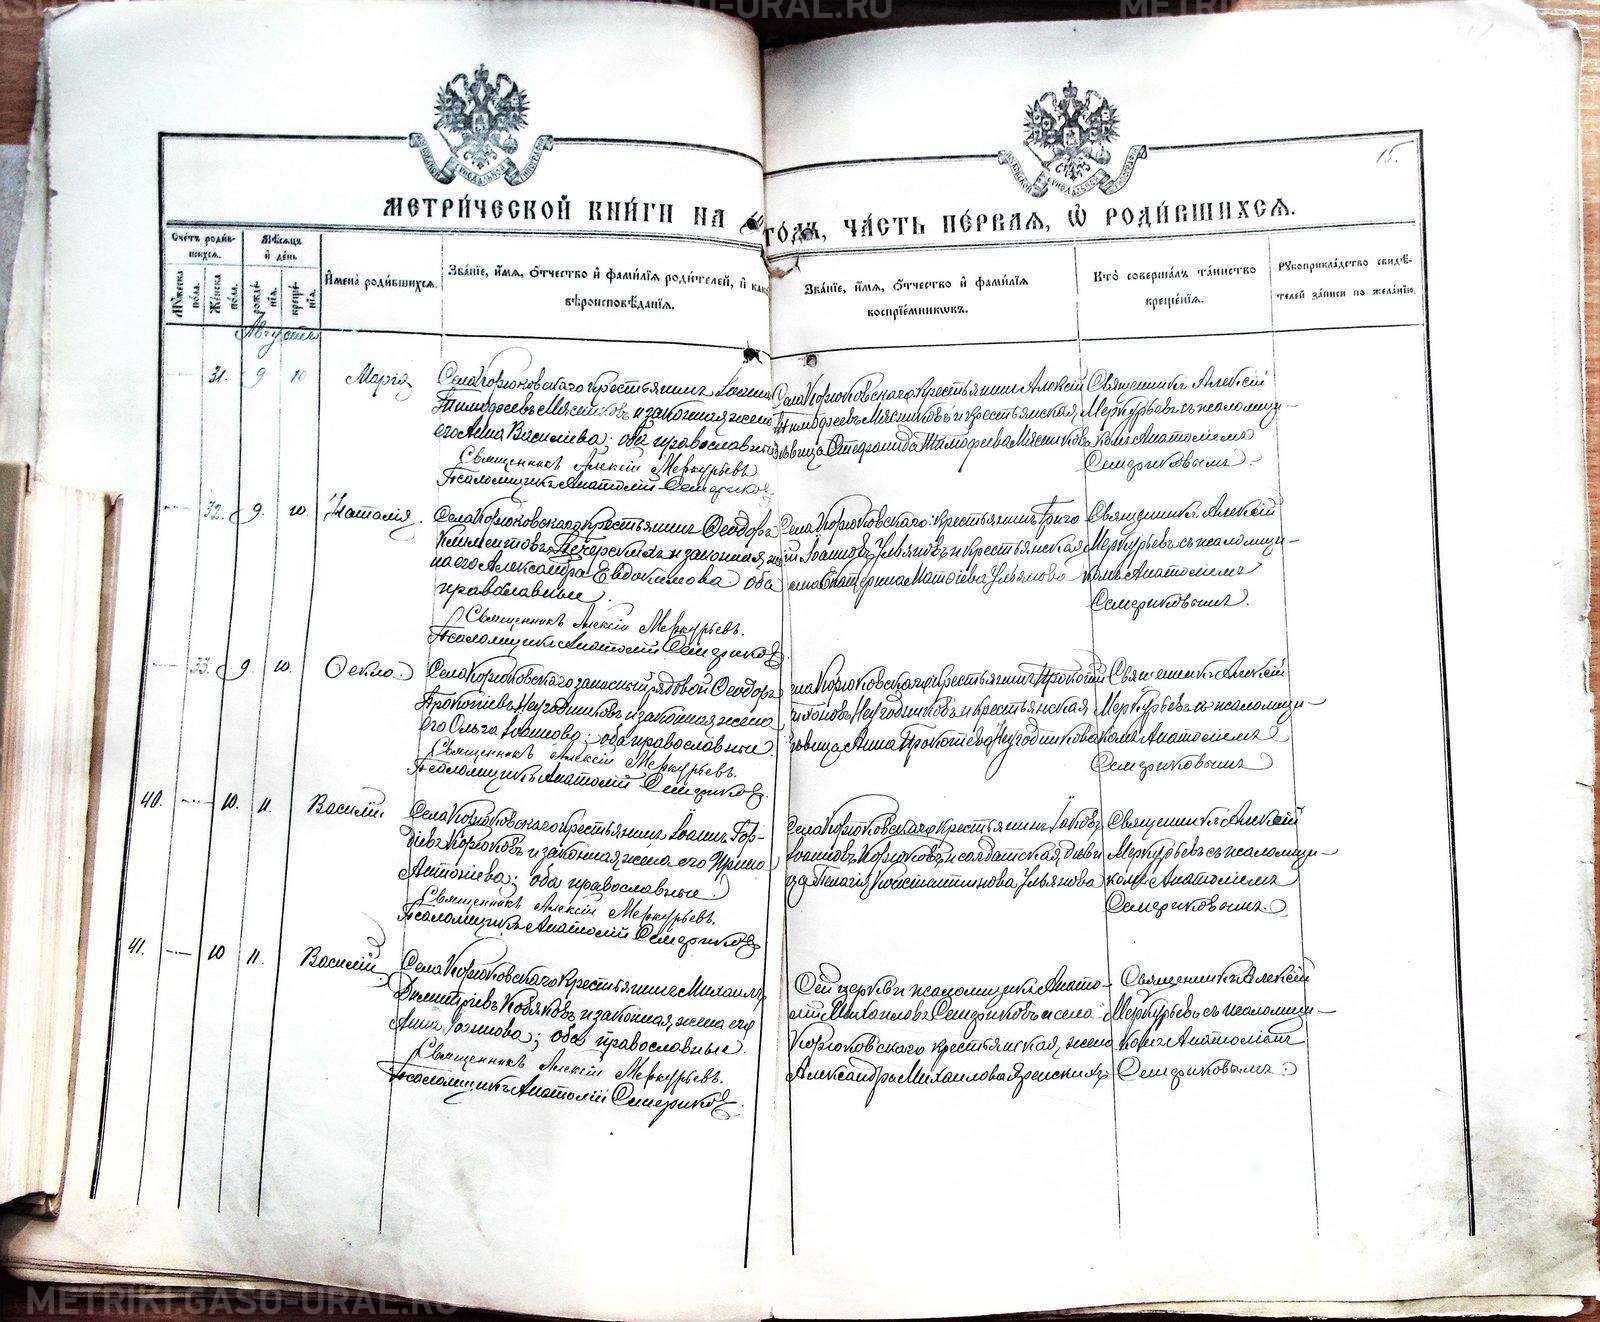 METRIKI.GASO-URAL.RU
METRIKI.GASO-URAL.RU
15.
МЕТРИ́ЧЕСКОЙ КНИ́ГИ НА
ГО́ДЪ, ЧА́СТЬ ПЕ́РВАЯ, Ѿ РОДИ́ВШИХСЯ.
Сче́тъ роди́в-
шихся.
Мѣ́сяцъ
и҆ де́нь
Мꙋ́жеска
по́ла.
Же́нска
по́ла.
рожде́-
нїя.
креще́-
нїя.
И҆мена̀ роди́вшихся.
Зва́нїе, и҆́мя, о҆́тчество и҆ фами́лїя роди́телей, и҆ како́
вѣроисповѣ́данїя.
Зва́нїе, и҆́мя, о҆́тчество и҆ фами́лїя
воспрїе́мниковъ.
Кто̀ соверша́лъ та́инство
креще́нїя.
Рꙋкоприкла́дство свидѣ́-
телей за́писи по жела́нїю.
Августа
31. 9 10 Марія
Села Корюковскаго крестьянинъ Іоаннъ
Тимофеевъ Мясниковъ и законная жена
его Анна Васильева; оба православные
Священникъ Алексій Меркурьевъ
Псаломщикъ Анатолій Семериков
Села Корюковскаго крестьянинъ Алексій
Тимофеевъ Мясниковъ и крестьянская
дѣвица Стефанида Тимофеева Мясникова
Священникъ Алексій
Меркурьевъ съ псаломщи-
комъ Анатоліемъ
Семериковымъ.
32. 9. 10. Наталія.
Села Корюковскаго крестьянинъ Ѳеодоръ
Климентовъ Печерскихъ и законная же
на его Александра Евдокимова оба
православные.
Священникъ Алексій Меркурьевъ.
Псаломщикъ Анатолій Семериков
Села Корюковскаго крестьянинъ Григо
рій Іоанновъ Ульяновъ и крестьянская
жена Екатерина Матѳіева Ульянова
Священникъ Алексій
Меркурьевъ съ псаломщи-
комъ Анатоліемъ
Семериковымъ.
33. 9. 10. Ѳекла.
Села Корюковскаго запасный рядовой Ѳеодоръ
Прокопіевъ Негодниковъ и законная жена
его Ольга Іоаннова; оба православные.
Священникъ Алексій Меркурьевъ.
Псаломщикъ Анатолій Семериков.
Села Корюковскаго крестьянинъ Прокопій
Негодниковъ и крестьянская
дѣвица Анна Прокопіева Негодникова
Священникъ Алексій
Меркурьевъ съ псаломщи-
комъ Анатоліемъ
Семериковымъ
40. 10. 11. Василій
Села Корюковскаго крестьянинъ Іоаннъ Гор-
діевъ Корюковъ и законная жена его Ирина
Антоніева; оба православные.
Священникъ Алексій Меркурьевъ.
Псаломщикъ Анатолій Семериков
Села Корюковскаго крестьянинъ Іаковъ
Іоанновъ Корюковъ и солдатская дѣви
ца Пелагія Константинова Ульянова
Священникъ Алексій
Меркурьевъ съ псаломщи-
комъ Анатоліемъ
Семериковымъ.
41. 10 11. Василій
Села Корюковскаго крестьянинъ Михаилъ
Димитріевъ Кобяковъ и законная жена его
Анна; оба православные.
Священникъ Алексій Меркурьевъ.
Псаломщикъ Анатолій Семериков.
Сей церкви псаломщикъ Анато-
лій Михаиловъ Семериковъ и села
Корюковскаго крестьянская жена
Александра Михаилова
Священникъ Алексій
Меркурьевъ съ псаломщи-
комъ Анатоліемъ
Семериковымъ.
METRIKI.GASO-URAL.RU
METRIKI.GASO-URAL.RU